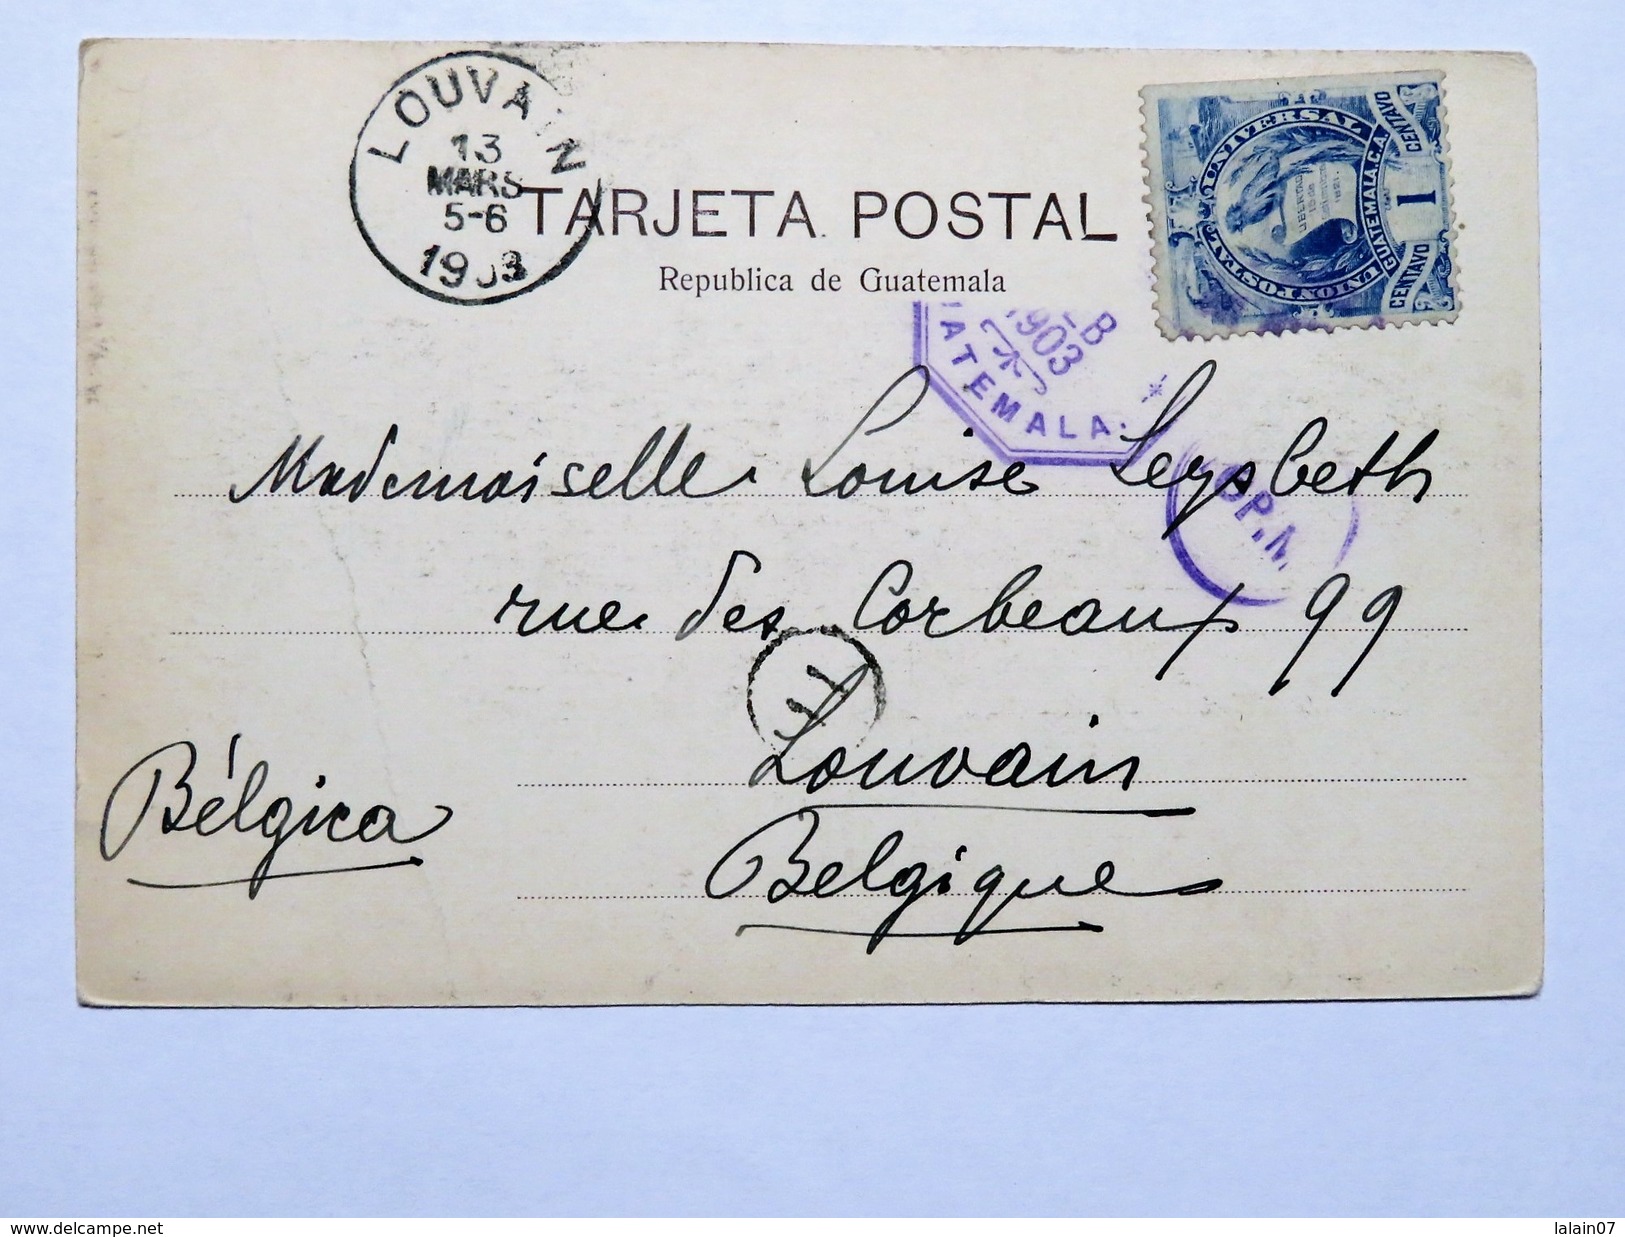 LOUVAIN
13
MARS
5-6
1903
TARJETA POSTAL
Republica de Guatemala
UNION POSTAL UNIVERSAL
GUATEMALA.C.A.
CENTAVO 1 CENTAVO
1903
ATEMALA.
P.M
Mademoiselle Louise Leysbeth
rue des Corbeaux 99
Louvain
Bélgica
Belgique
www.delcampe.net
lalain07